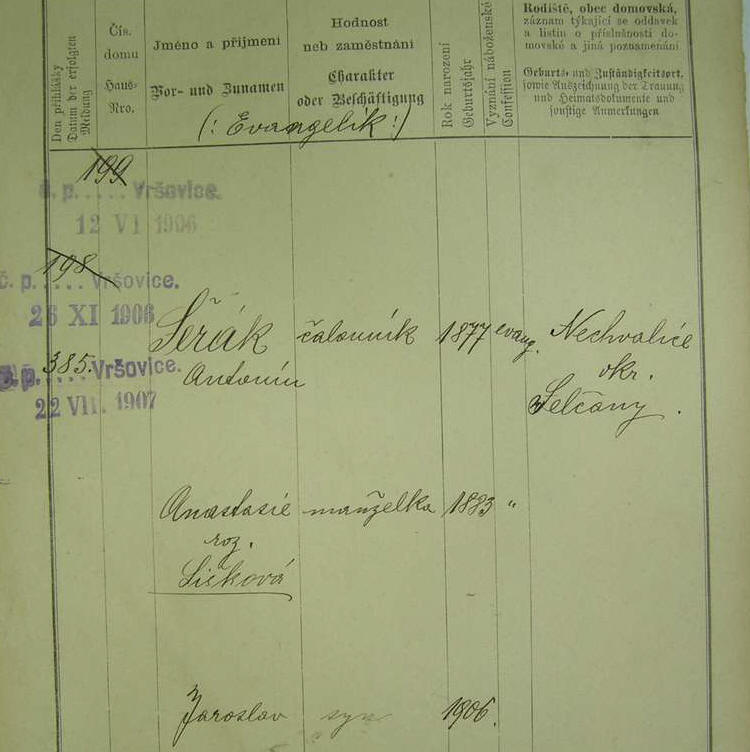 Den přihlášky
Datum der erfolgten
Meldung
Čís.
domu
Haus-
Nro.
Jméno a příjmení
Vor- und Zunamen
Hodnost
neb zaměstnání
Charakter
oder Beschäftigung
(: Evangelík :)
Rok narození
Geburtsjahr
Vyznání náboženské
Confession
Rodiště, obec domovská,
záznam týkající se oddavek
a listin o příslušnosti do-
movské a jiná poznamenání
Geburts- und Zuständigkeitsort,
sowie Auszeichnung der Trauung
und Heimatsdokumente und
sonstige Anmerkungen
199
č. p. .... Vršovice.
12 VI 1906
198
č. p. .... Vršovice.
26 XI 1906
385.
č. p. .... Vršovice.
22 VII. 1907
Seřák čalouník 1877 evang. Nechvalice
Antonín okr.
Selčany.
Anastasie manželka 1883 "
roz.
Lišková
Jaroslav syn 1906.